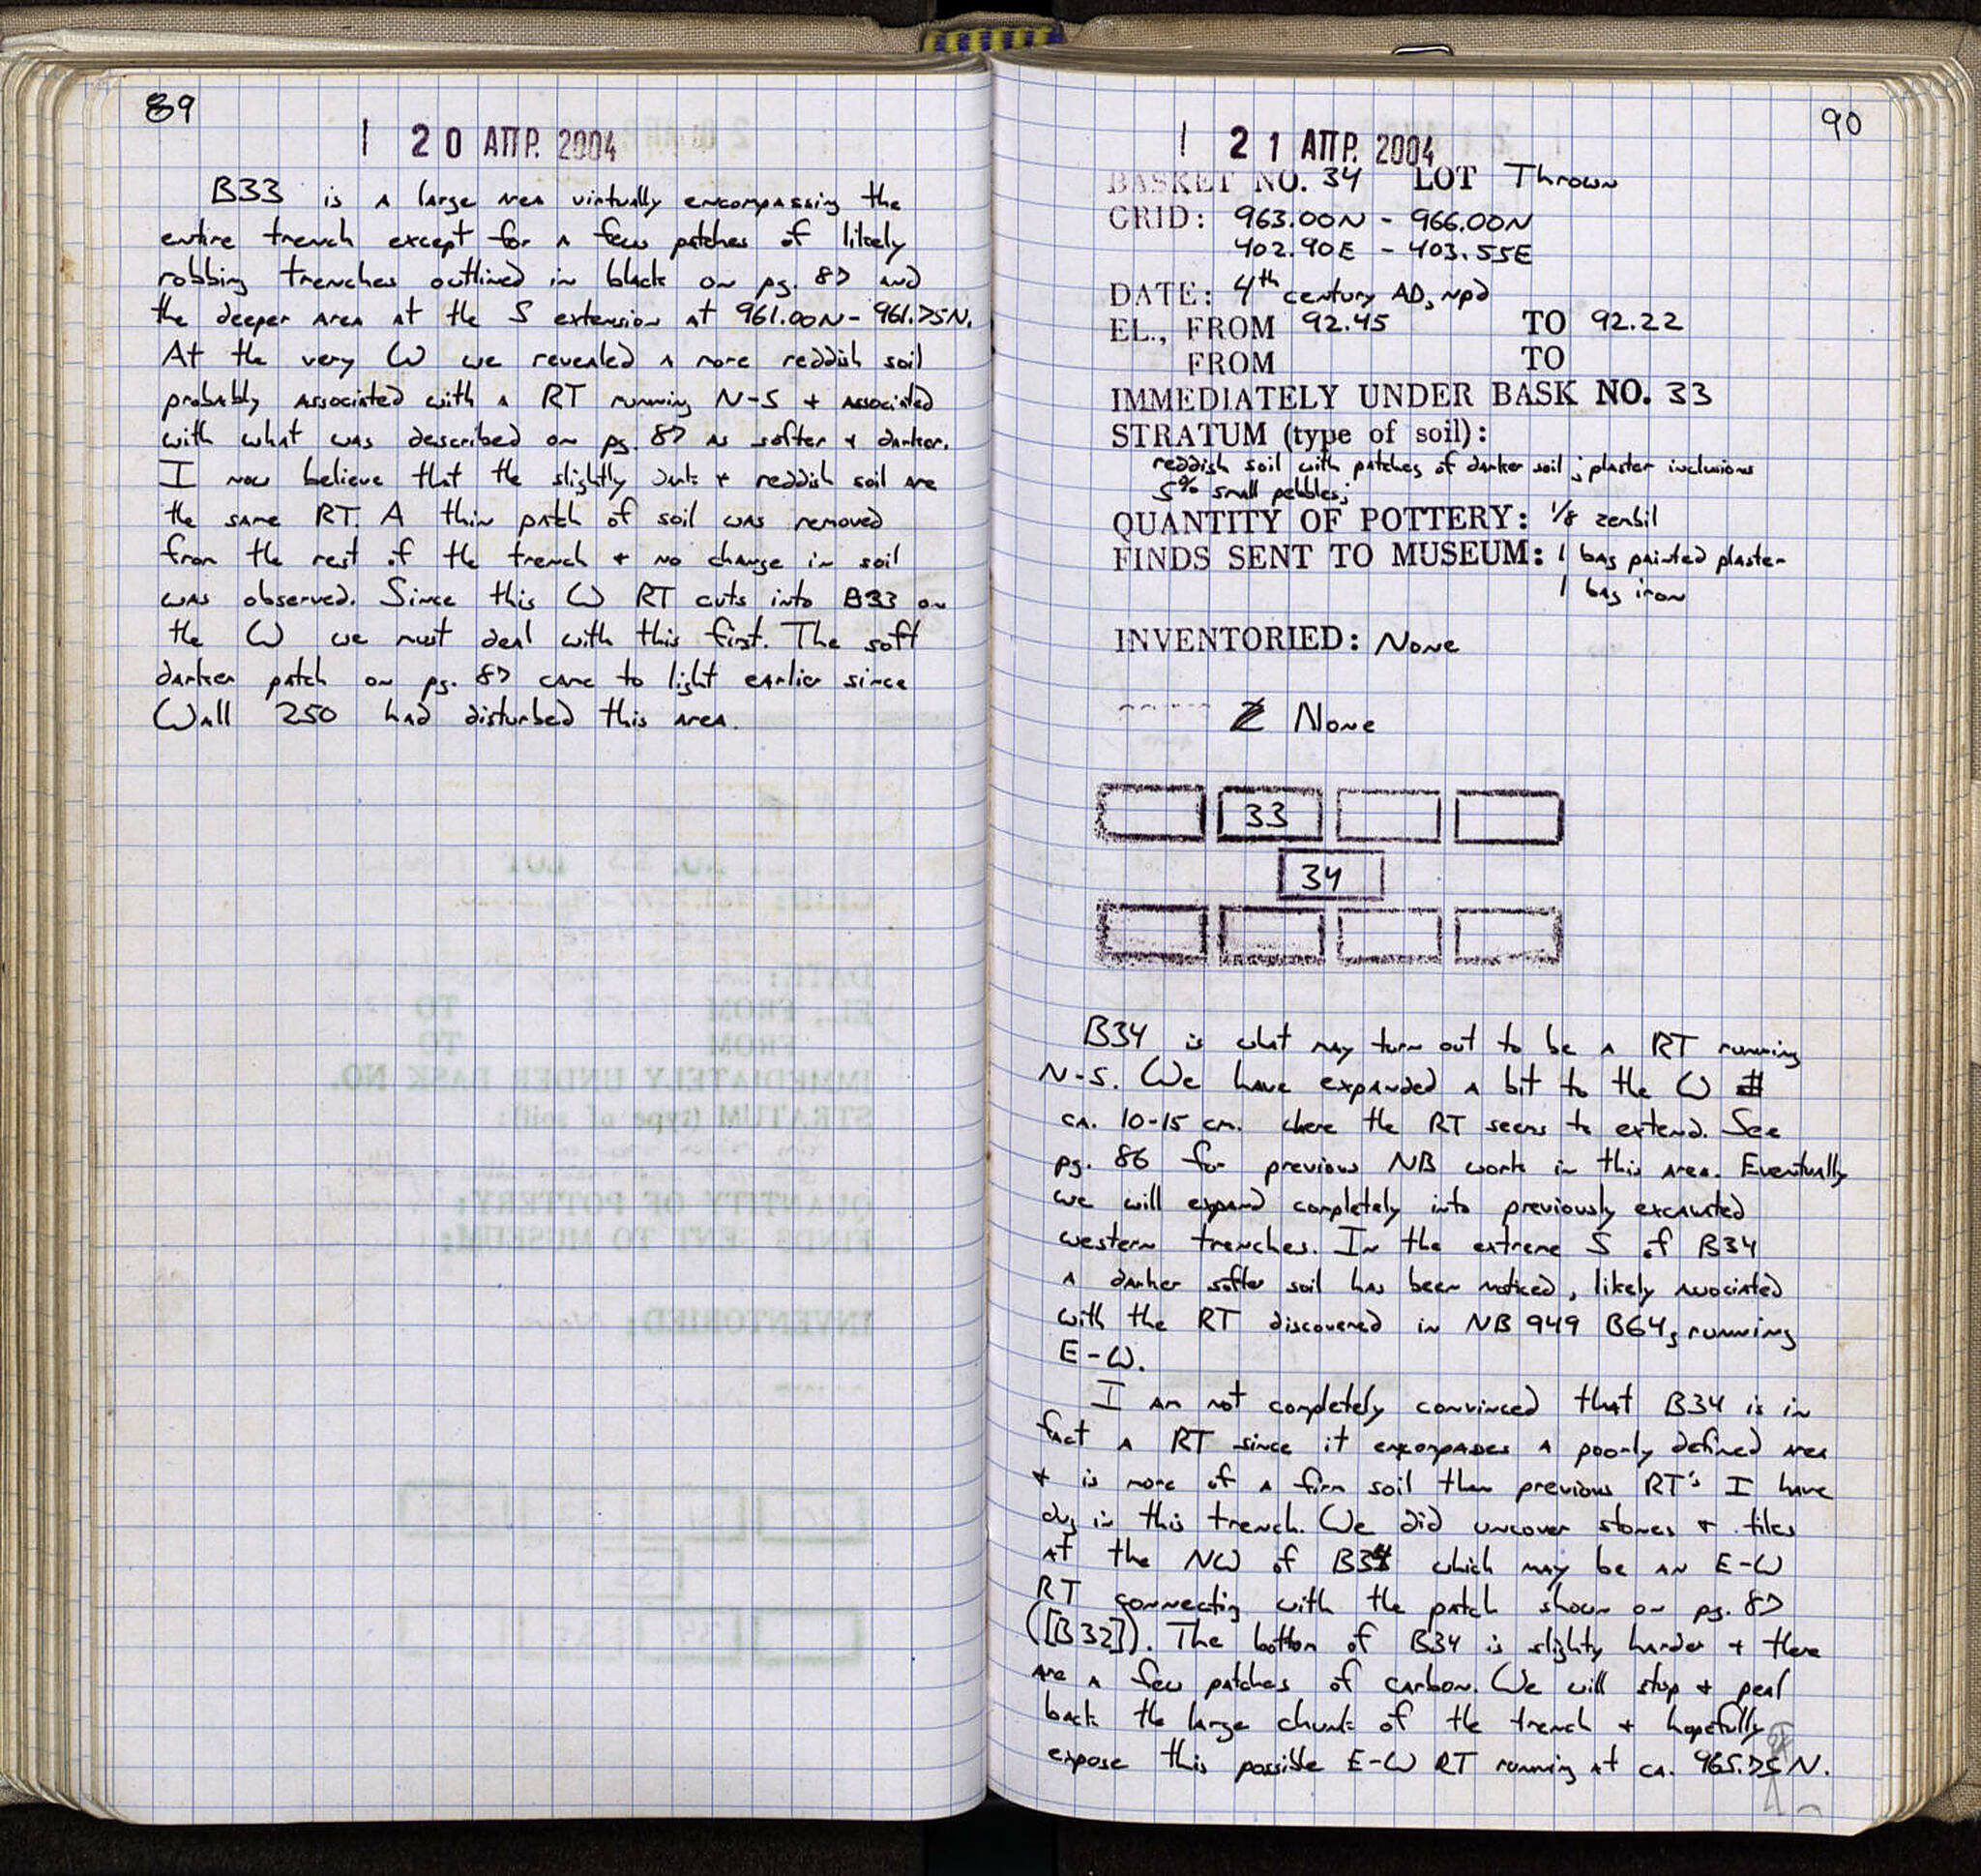 89
20 ΑΠΡ. 2004
B33 is a large area virtually encompassing the
entire trench except for a few patches of likely
robbing trenches outlined in black on pg. 87 and
the deeper area at the S extension at 961.00N - 961.75N.
At the very W we revealed a more reddish soil
probably associated with a RT running N-S + associated
with what was described on pg. 87 as softer + darker.
I now believe that the slightly dark + reddish soil are
the same RT. A thin patch of soil was removed
from the rest of the trench + no change in soil
was observed. Since this W RT cuts into B33 on
the W we must deal with this first. The soft
darker patch on pg. 87 came to light earlier since
Wall 250 had disturbed this area.
90
21 ΑΠΡ. 2004
BASKET NO. 34 LOT Thrown
GRID: 963.00N - 966.00N
402.90E - 403.55E
DATE: 4th century AD, npd
EL., FROM 92.45 TO 92.22
FROM TO
IMMEDIATELY UNDER BASK NO. 33
STRATUM (type of soil):
reddish soil with patches of darker soil; plaster inclusions
5% small pebbles;
QUANTITY OF POTTERY: 1/8 zembil
FINDS SENT TO MUSEUM: 1 bag painted plaster
1 bag iron
INVENTORIED: None
None
33
34
B34 is what may turn out to be a RT running
N-S. We have expanded a bit to the W
ca. 10-15 cm. where the RT seems to extend. See
pg. 86 for previous NB work in this area. Eventually
we will expand completely into previously excavated
western trenches. In the extreme S of B34
a darker softer soil has been noticed, likely associated
with the RT discovered in NB 949 B64, running
E-W.
I am not completely convinced that B34 is in
fact a RT since it encompasses a poorly defined area
+ is more of a firm soil than previous RT's I have
dug in this trench. We did uncover stones + tiles
at the NW of B34 which may be an E-W
RT connecting with the patch shown on pg. 87
([B32]). The bottom of B34 is slighty harder + there
are a few patches of carbon. We will stop + peal
back the large chunk of the trench + hopefully
expose this possible E-W RT running at ca. 965.75N.